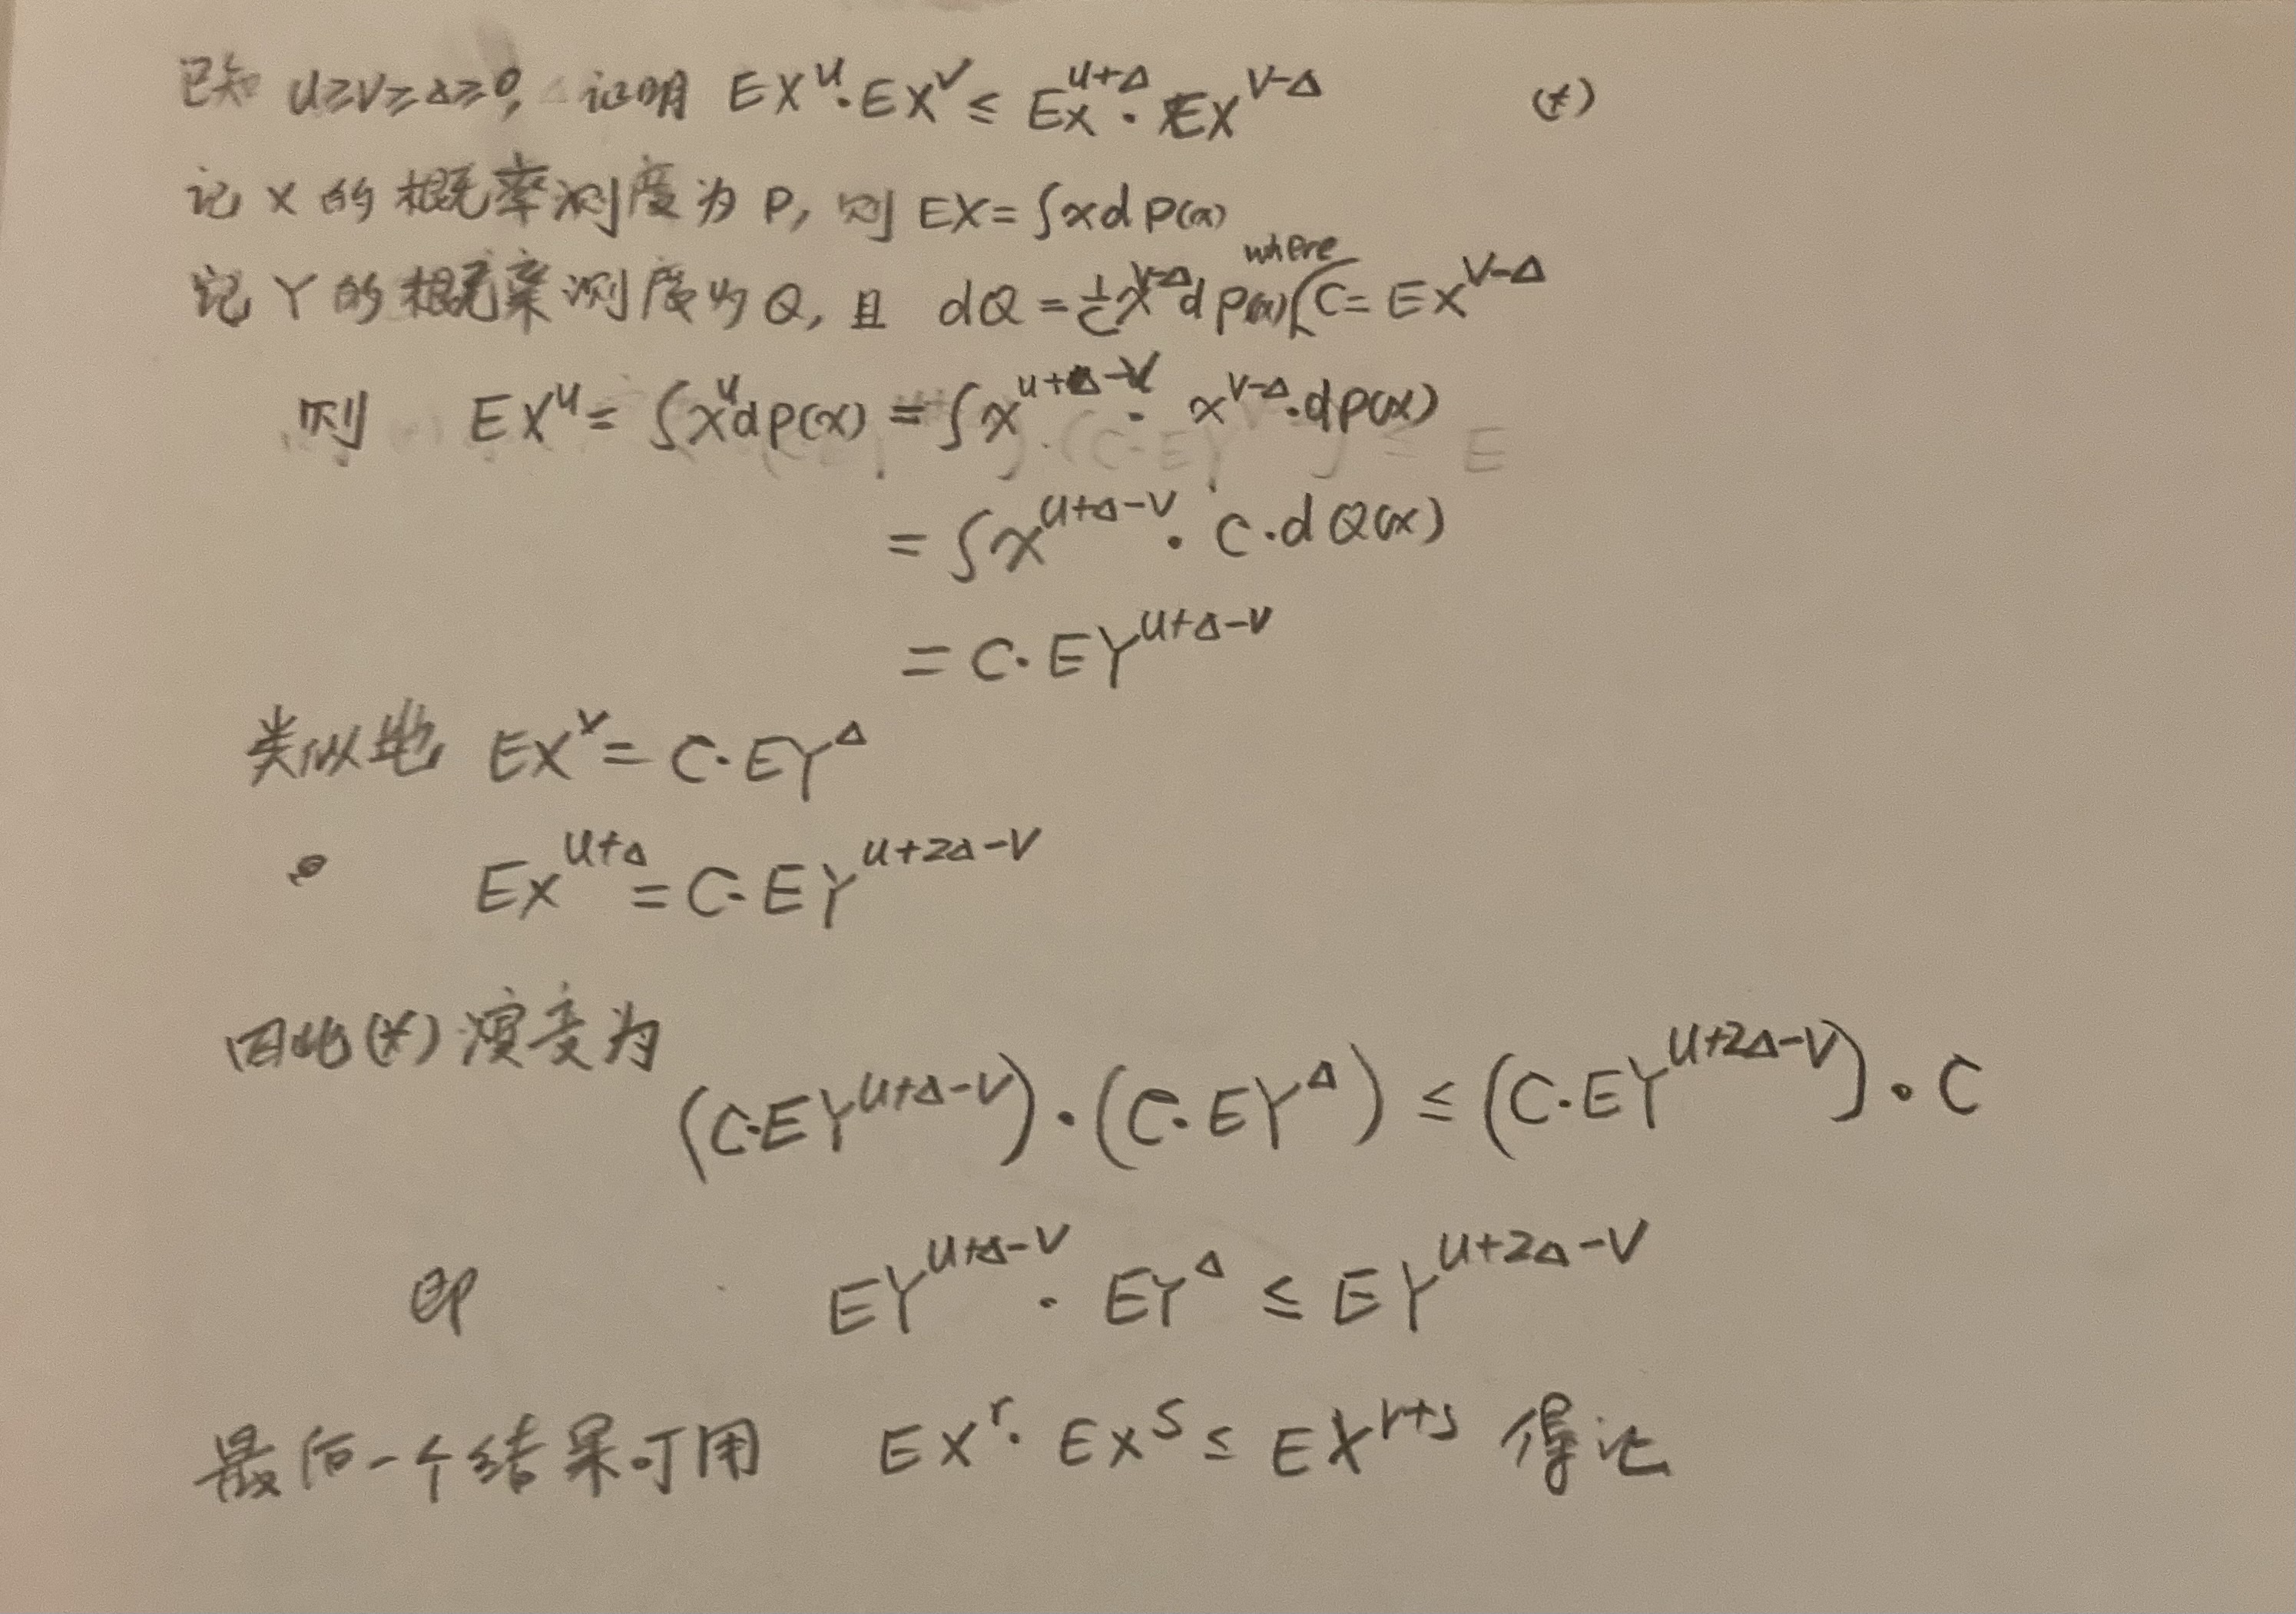 已知 u≥v≥Δ≥0, 证明 EX^u·EX^v ≤ EX^{u+Δ}·EX^{v-Δ} (*)
记 X 的概率测度为 P, 则 EX=∫xdP(x)
记 Y 的概率测度为 Q, 且 dQ=1/C x^{v-Δ}dP(x) (where C=EX^{v-Δ}
则 EX^u=∫x^u dP(x)=∫x^{u+Δ-v}·x^{v-Δ}·dP(x)
=∫x^{u+Δ-v}·C·dQ(x)
=C·EY^{u+Δ-v}
类似地 EX^v=C·EY^Δ
EX^{u+Δ}=C·EY^{u+2Δ-v}
因此(*)演变为
(C·EY^{u+Δ-v})·(C·EY^Δ)≤(C·EY^{u+2Δ-v})·C
即 EY^{u+Δ-v}·EY^Δ≤EY^{u+2Δ-v}
最后一个结果可用 EX^r·EX^s≤EX^{r+s} 得证